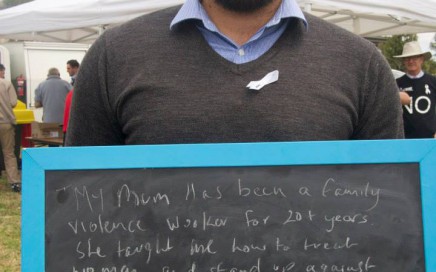 NO
"My Mum Has been a family
violence worker for 20+ years
She taught me how to treat
women and stand up against